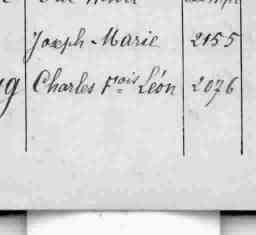 Joseph Marie 2155
Charles F.ois Léon 2076